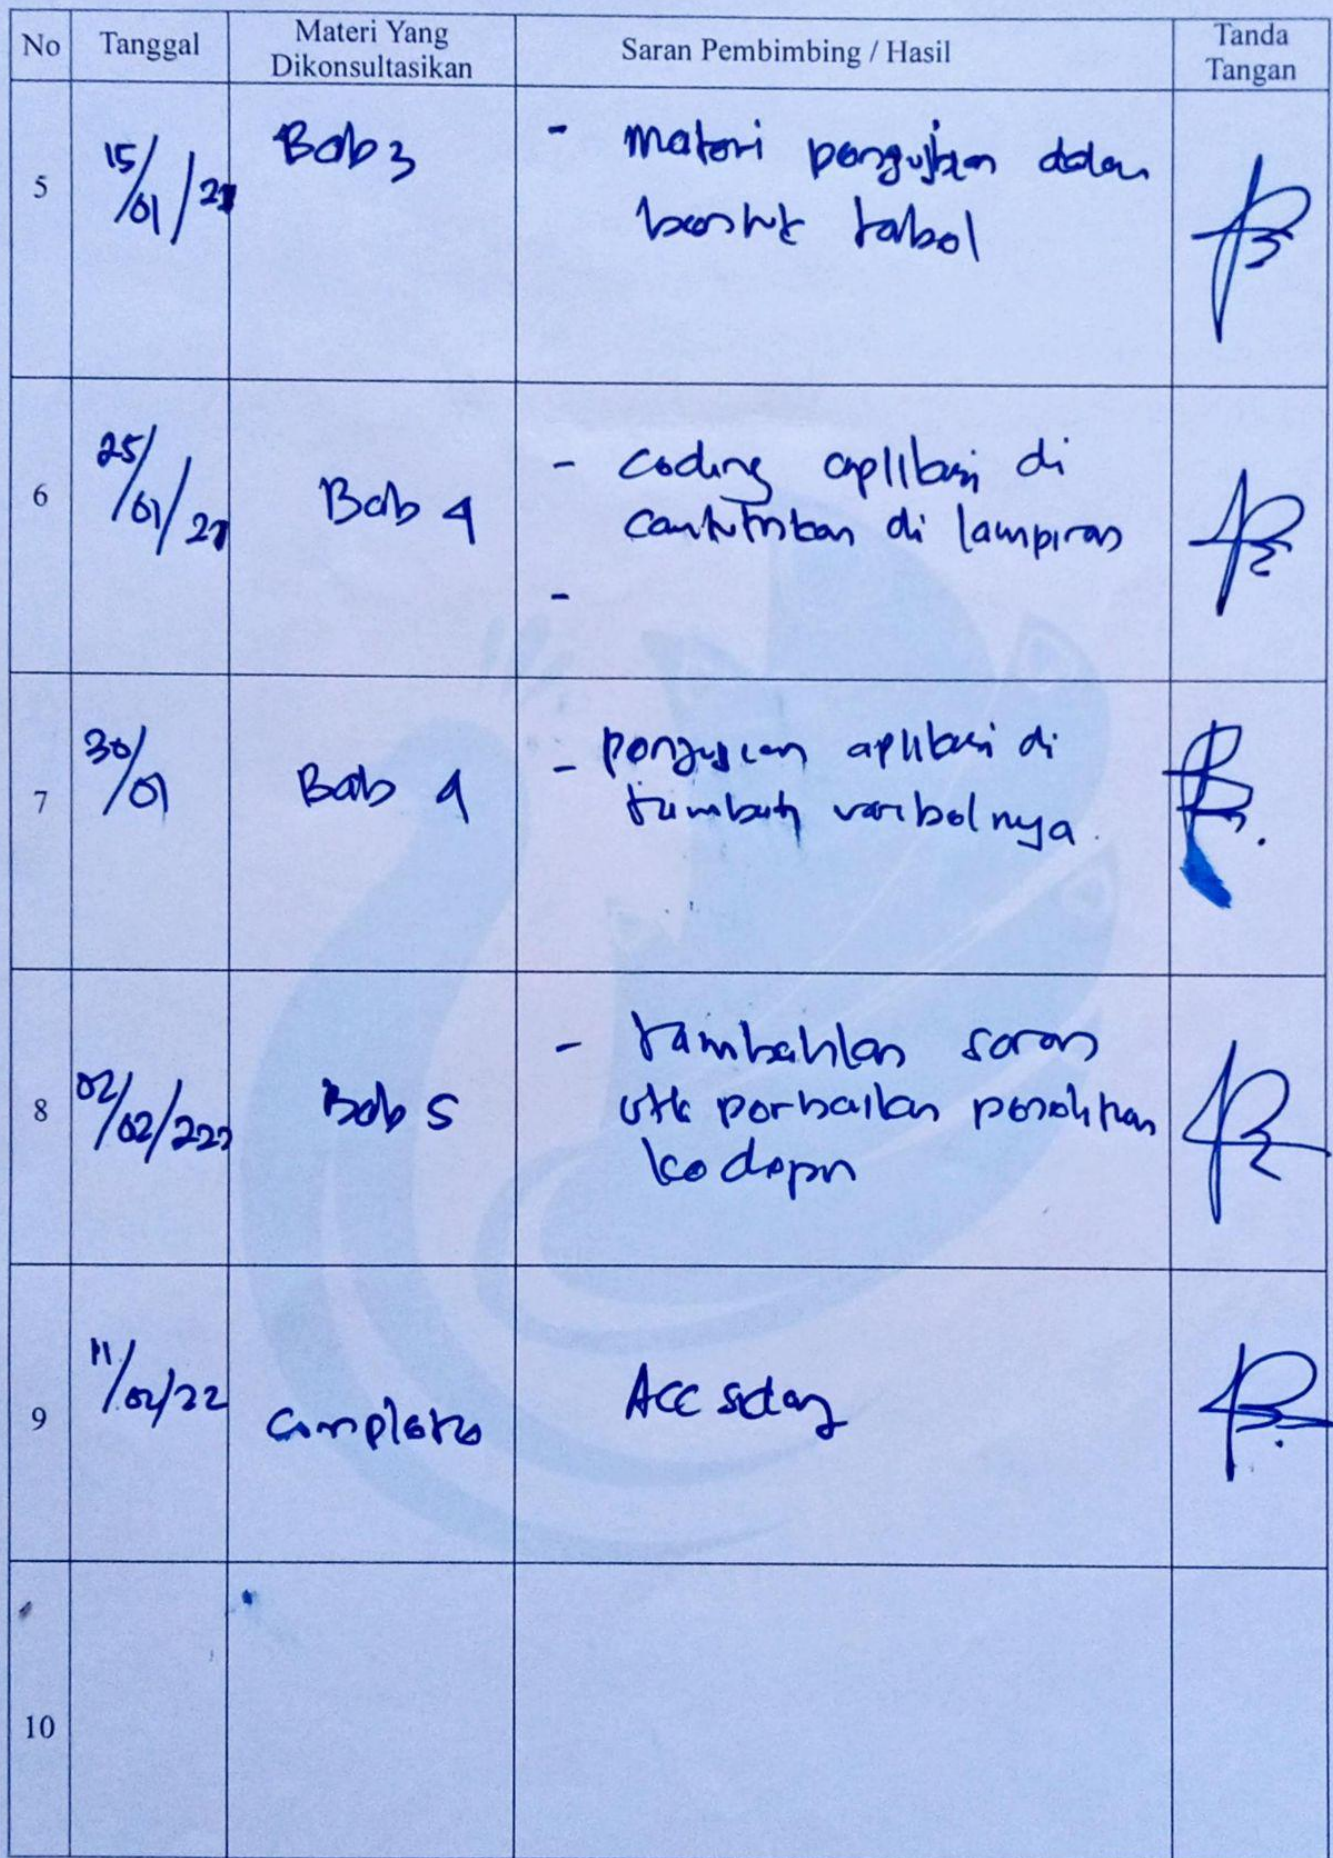 No Tanggal Materi Yang Dikonsultasikan Saran Pembimbing / Hasil Tanda Tangan
5 15/01/22 Bab 3 - Materi pengujian dalam
bentuk tabel
6 25/01/22 Bab 4 - Coding aplikasi di
cantumkan di lampiran
-
7 30/01 Bab 4 - pengujian aplikasi di
tambah varibelnya.
8 02/02/222 Bab 5 - tambahkan saran
utk perbaikan penelitian
ke depn
9 11/02/22 Complete ACC sidang
10